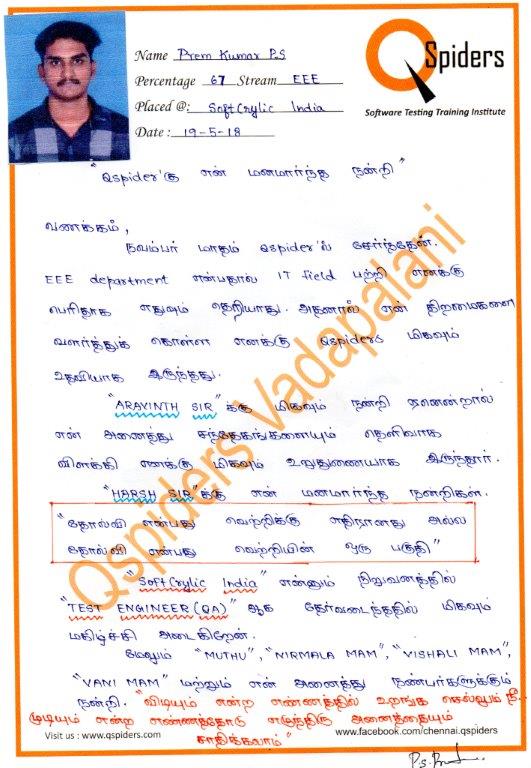 Name Prem Kumar P.S
Percentage 67 Stream EEE
Placed @: SoftCrylic India
Date : 19-5-18
QSpiders
Software Testing Training Institute
"Qspider'கு என் மனமார்ந்த நன்றி"
வணக்கம்,
நவம்பர் மாதம் Qspider'ல் சேர்ந்தேன்.
EEE department என்பதால் IT field பற்றி எனக்கு
பெரிதாக எதுவும் தெரியாது. அதனால் என் திறமைகளை
வளர்த்துக் கொள்ள எனக்கு Qspiders மிகவும்
உதவியாக இருந்தது.
"ARAVINTH SIR"க்கு மிகவும் நன்றி ஏனென்றால்
என் அனைத்து சந்தேகங்களையும் தெளிவாக
விளக்கி எனக்கு மிகவும் உறுதுணையாக இருந்தார்.
"HARSH SIR"க்கு என் மனமார்ந்த நன்றிகள்.
"தோல்வி என்பது வெற்றிக்கு எதிரானது அல்ல
தோல்வி என்பது வெற்றியின் ஒரு பகுதி"
"SoftCrylic India" என்னும் நிறுவனத்தில்
"TEST ENGINEER (QA)" ஆக தேர்வடைந்ததில் மிகவும்
மகிழ்ச்சி அடைகிறேன்.
மேலும் "MUTHU", "NIRMALA MAM", "VISHALI MAM",
"VANI MAM" மற்றும் என் அனைத்து நண்பர்களுக்கும்
நன்றி. "விடியும் என்ற எண்ணத்தில் உறங்க செல்லும் நீ..
முடியும் என்ற எண்ணத்தோடு எழுந்திரு அனைத்தையும்
சாதிக்கலாம்"
Visit us : www.qspiders.com
www.facebook.com/chennai.qspiders
Qspiders Vadapalani